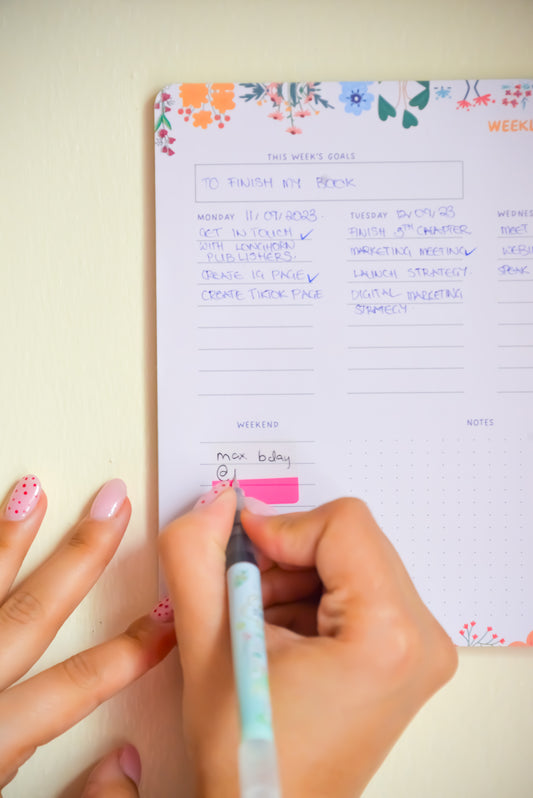 WEEKL
THIS WEEK'S GOALS
TO FINISH MY BOOK
MONDAY 11/09/2023.
GET IN TOUCH ✓
WITH LONGHORN
PUBLISHERS.
CREATE IG PAGE ✓
CREATE TIKTOK PAGE
TUESDAY 12/09/23
FINISH 5TH CHAPTER
MARKETING MEETING ✓
LAUNCH STRATEGY.
DIGITAL MARKETING
STRATEGY.
WEDNES
MEET
WEBI
SPEAK
WEEKEND
max bday
@
NOTES